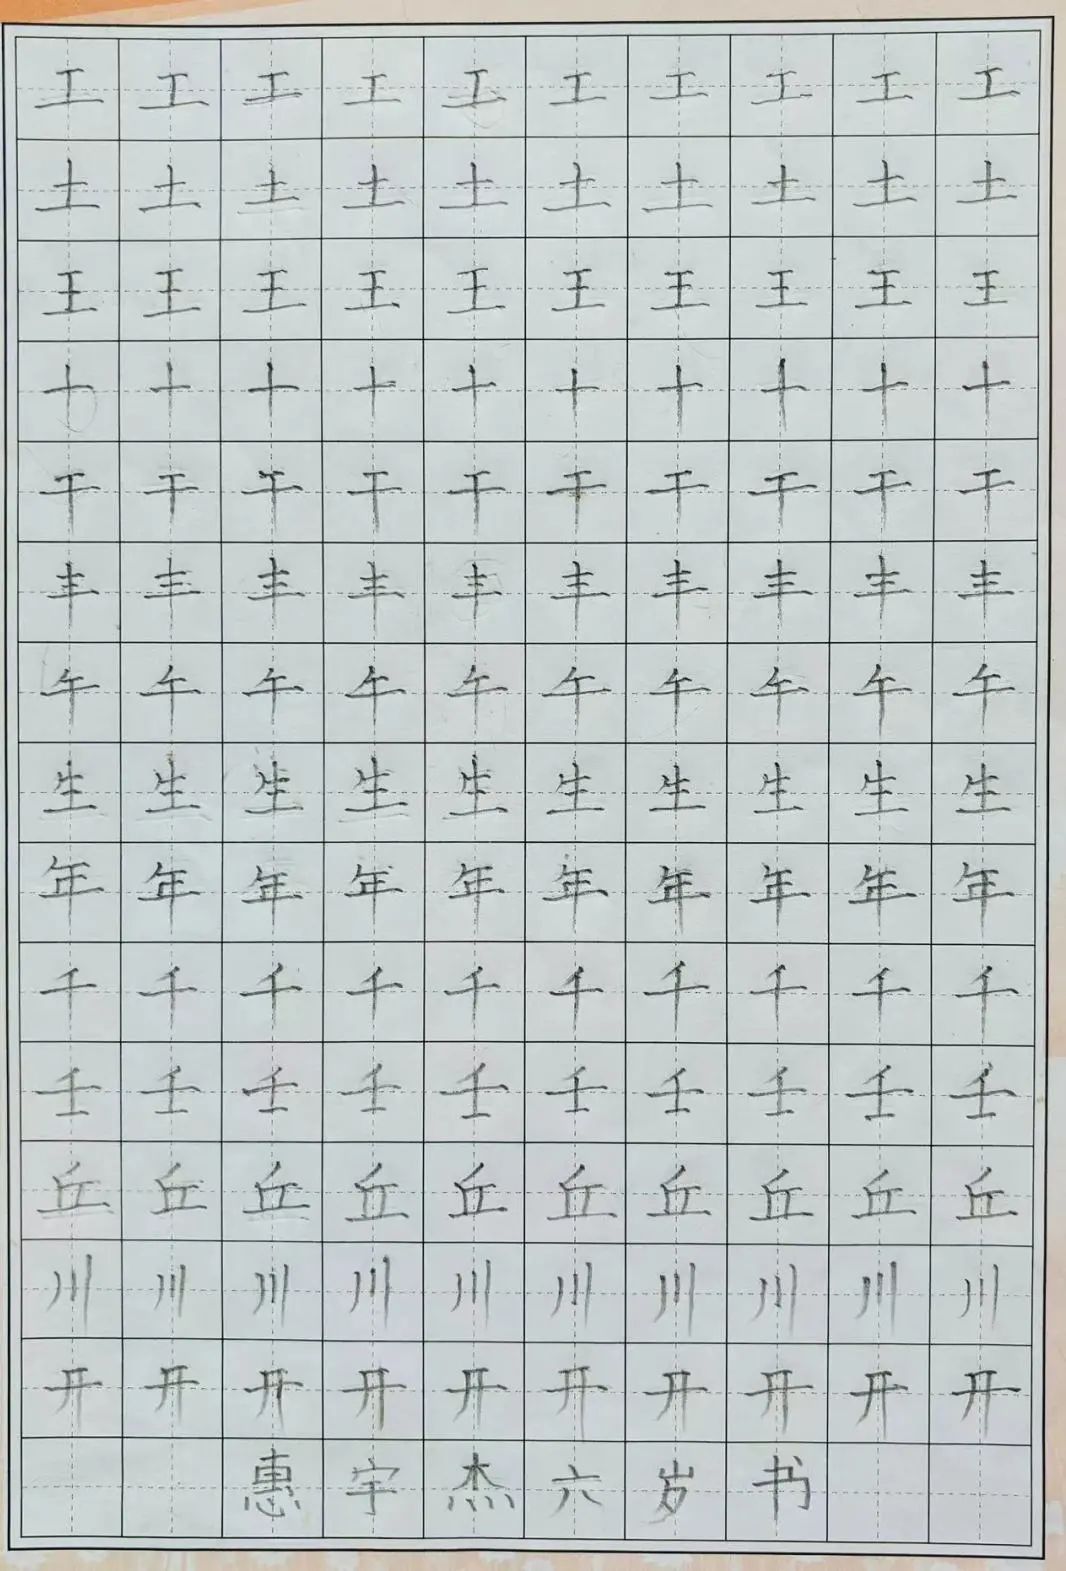 工工工工工工工工工工
土土土土土土土土土土
王王王王王王王王王王
十十十十十十十十十十
干干干干干干干干干干
丰丰丰丰丰丰丰丰丰丰
午午午午午午午午午午
生生生生生生生生生生
年年年年年年年年年年
千千千千千千千千千千
壬壬壬壬壬壬壬壬壬壬
丘丘丘丘丘丘丘丘丘丘
川川川川川川川川川川
开开开开开开开开开开
惠宇杰六岁书